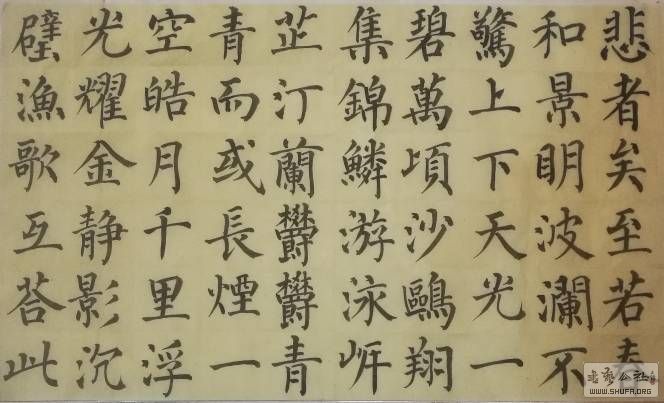 悲者矣至若春
和景眀波瀾不
驚上下天光一
碧萬頃沙鷗翔
集錦鱗游泳岸
芷汀蘭欝欝青
青而或長煙一
空皓月千里浮
光耀金静影沉
璧漁歌互荅此
书艺公社
WWW.SHUFA.ORG